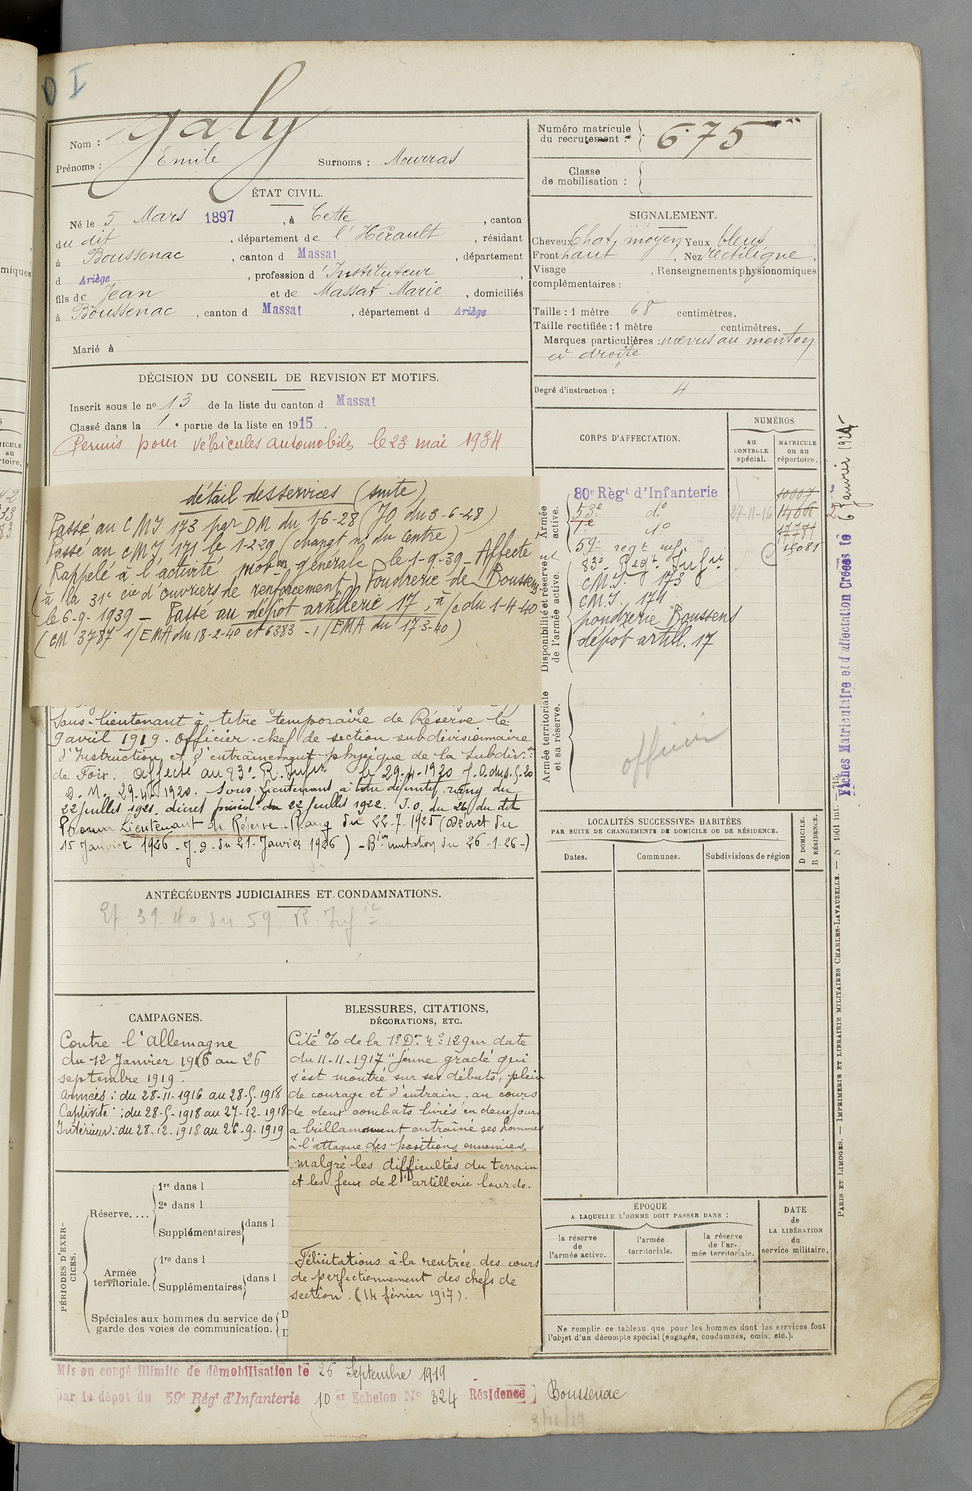 D I
Nom : Galy
Prénoms : Emile Surnoms : Mourras
Numéro matricule
du recrutement : 675
Classe
de mobilisation :
ÉTAT CIVIL.
Né le 5 Mars 1897, à Cette, canton
du dit, département de l'Hérault, résidant
à Boussenac, canton d Massat, département
d Ariège, profession d'Instituteur
fils de Jean et de Massat Marie, domiciliés
à Boussenac, canton d Massat, département d Ariège
Marié à
SIGNALEMENT.
Cheveux Chat. moyen Yeux bleus
Front haut, Nez rectiligne,
Visage , Renseignements physionomiques
complémentaires :
Taille : 1 mètre 68 centimètres.
Taille rectifiée : 1 mètre centimètres.
Marques particulières : nœvus au menton
à droite
Degré d'instruction : 4
DÉCISION DU CONSEIL DE REVISION ET MOTIFS.
Inscrit sous le no 13 de la liste du canton d Massat
Classé dans la 1e partie de la liste en 1915
Permis pour véhicules automobiles le 23 mai 1934
détail des services (suite)
Passé au CMI 173 par DM du 1-6-28 (JO du 3-6-28)
Passé au CMI 171 le 1-2-29 (changt n° du centre)
Rappelé à l'activité mobon générale le 1-9-39 - Affecté
(à la 31e cie d'ouvriers de renforcement) fonderie de Boussens
le 6-9-1939 - Passé au dépôt artillerie 17, à/c du 1-4-40
(CM 3787 1/EMA du 18-2-40 et 6383 - 1/EMA du 17-3-40)
Sous-lieutenant à titre temporaire de Réserve le
9 avril 1919. Officier chef de section subdivisionnaire
d'Instruction et d'entraînement physique de la Subdivon
de Foix. Affecté au 83e R. Infie le 29-4-1920 J.O. du 4-5-20
22 juillet 1921. décret 22 juillet 1922. J.O. du 26 du dit
Promu Lieutenant de Réserve. Rang du 22-7-1925 (Décret du
15 Janvier 1926 - J.O. du 21 Janvier 1926) - Bin mutation du 26-1-26-)
CORPS D'AFFECTATION.
NUMÉROS
au CONTROLE spécial.
MATRICULE ou au répertoire.
Armée active.
80e Régt d'Infanterie
58e do 27-11-16
7e do
59e regt inf. 15081
Disponibilité et réserve de l'armée active.
83e Regt Infie
CMI 173
CMI 171
fonderie Boussens
dépôt artill. 17
Armée territoriale et sa réserve.
officier
Fiches Matriculaire et d'affectation Créées le 6 Janvier 1925
LOCALITÉS SUCCESSIVES HABITÉES
PAR SUITE DE CHANGEMENTS DE DOMICILE OU DE RÉSIDENCE.
Dates. Communes. Subdivisions de région
D DOMICILE.
R RÉSIDENCE.
ANTÉCÉDENTS JUDICIAIRES ET CONDAMNATIONS.
Ef 39.40 du 59 R. Infie
CAMPAGNES.
Contre l'Allemagne
du 12 Janvier 1916 au 26
septembre 1919.
Armées : du 28-11-1916 au 28-5-1918
Captivité : du 28-5-1918 au 27-12-1918
Intérieur : du 28-12-1918 au 26-9-1919
BLESSURES, CITATIONS,
DÉCORATIONS, ETC.
Cité % de la 1e Don n° 129 en date
du 11-11-1917 "Jeune gradé qui
s'est montré sur ses débuts, plein
de courage et d'entrain, au cours
de deux combats livrés en deux jours
a brillamment entraîné ses hommes
à l'attaque des positions ennemies,
malgré les difficultés du terrain
et les feux de l'artillerie lourde.
Félicitations à la rentrée des cours
de perfectionnement des chefs de
section. (14 février 1917).
PÉRIODES D'EXERCICES.
Réserve....
1re dans l
2e dans l
Supplémentaires dans l
Armée territoriale.
1re dans l
Supplémentaires dans l
Spéciales aux hommes du service de
garde des voies de communication.
D
D
ÉPOQUE
A LAQUELLE L'HOMME DOIT PASSER DANS :
la réserve de l'armée active.
l'armée territoriale.
la réserve de l'armée territoriale.
DATE de LA LIBÉRATION du service militaire.
Ne remplir ce tableau que pour les hommes dont les services font
l'objet d'un décompte spécial (engagés, condamnés, omis, etc.).
PARIS ET LIMOGES. — IMPRIMERIE ET LIBRAIRIE MILITAIRES CHARLES-LAVAUZELLE.
Mis en congé illimité de démobilisation le 26 Septembre 1919
par le dépôt du 59e Régt d'Infanterie 10e Echelon No 324 Résidence Boussenac